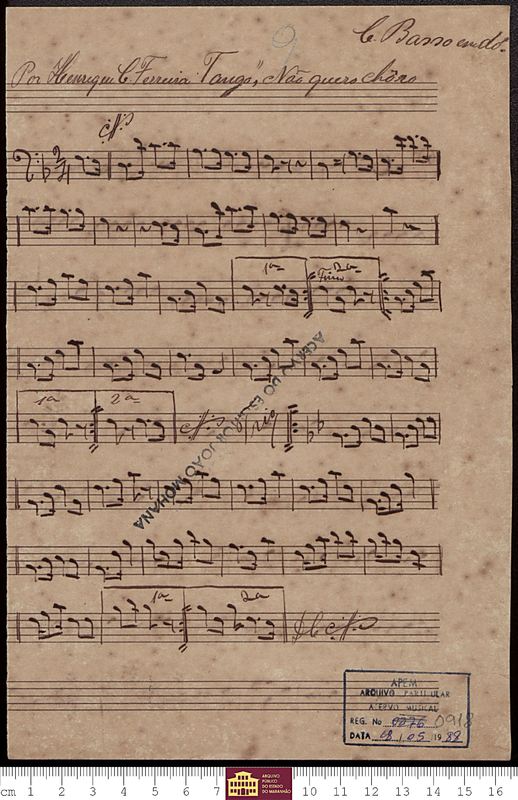 9
C. Basso em dó.
Por Henrique C. Ferreira Tango, "Não quero chôro
1a 2a
Fim
1a 2a
Trio
1a 2a
D.C.
ACERVO DO ESCRITOR JOÃO MOHANA
APEM
ARQUIVO PARTICULAR
ACERVO MUSICAL
REG. No 0376 0918
DATA 08 / 05 1989
cm 1 2 3 4 5 6 7 10 11 12 13 14 15 16
ARQUIVO
PÚBLICO
DO ESTADO
DO MARANHÃO